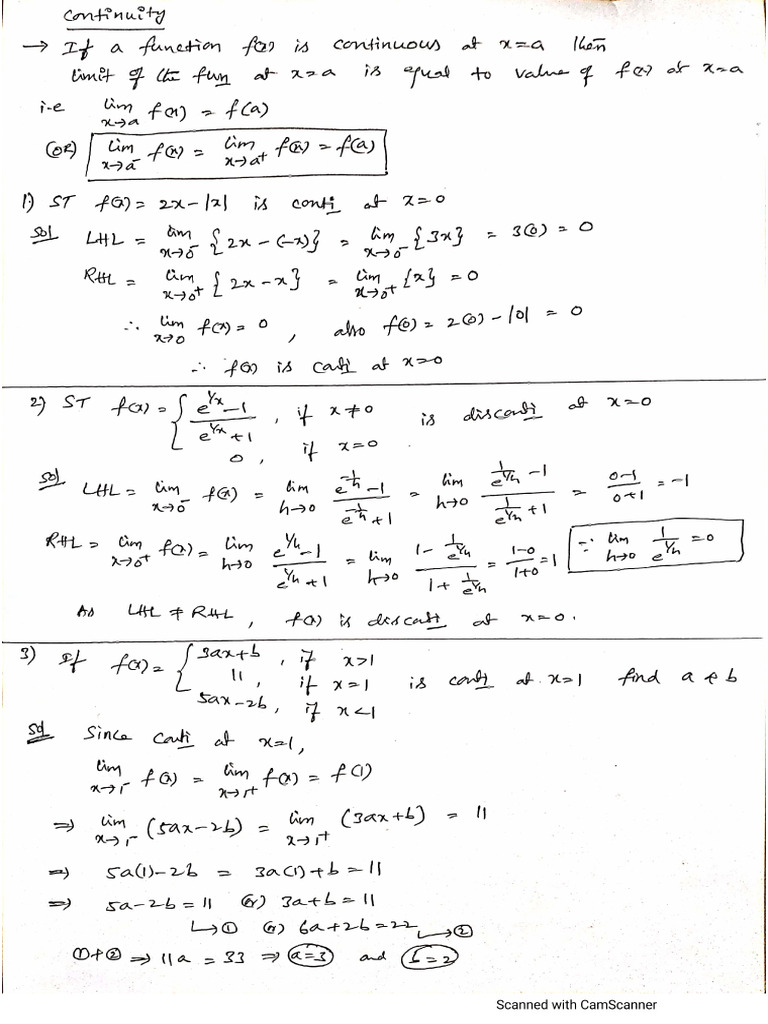 Continuity
→ If a function f(x) is continuous at x=a then
limit of the fun at x=a is equal to value of f(x) at x=a
i.e lim x→a f(x) = f(a)
(OR) lim x→a⁻ f(x) = lim x→a⁺ f(x) = f(a)
1) ST f(x) = 2x-|x| is conti at x=0
Sol LHL = lim x→0⁻ {2x-(-x)} = lim x→0⁻ {3x} = 3(0) = 0
RHL = lim x→0⁺ {2x-x} = lim x→0⁺ {x} = 0
∴ lim x→0 f(x) = 0, also f(0) = 2(0)-|0| = 0
∴ f(x) is conti at x=0
2) ST f(x) = { (e^(1/x) - 1)/(e^(1/x) + 1), if x≠0 is disconti at x=0
0, if x=0
Sol LHL = lim x→0⁻ f(x) = lim h→0 (e^(-1/h) - 1)/(e^(-1/h) + 1) = lim h→0 (1/e^(1/h) - 1)/(1/e^(1/h) + 1) = (0-1)/(0+1) = -1
RHL = lim x→0⁺ f(x) = lim h→0 (e^(1/h) - 1)/(e^(1/h) + 1) = lim h→0 (1 - 1/e^(1/h))/(1 + 1/e^(1/h)) = (1-0)/(1+0) = 1 ∵ lim h→0 1/e^(1/h) = 0
As LHL ≠ RHL, f(x) is disconti at x=0.
3) If f(x) = { 3ax+b, if x>1
11, if x=1 is conti at x=1 find a & b
5ax-2b, if x<1
Sol Since conti at x=1,
lim x→1⁻ f(x) = lim x→1⁺ f(x) = f(1)
⇒ lim x→1⁻ (5ax-2b) = lim x→1⁺ (3ax+b) = 11
⇒ 5a(1)-2b = 3a(1)+b = 11
⇒ 5a-2b = 11 (&) 3a+b = 11
↳① (&) 6a+2b = 22 ↳②
①+② ⇒ 11a = 33 ⇒ a=3 and b=2
Scanned with CamScanner